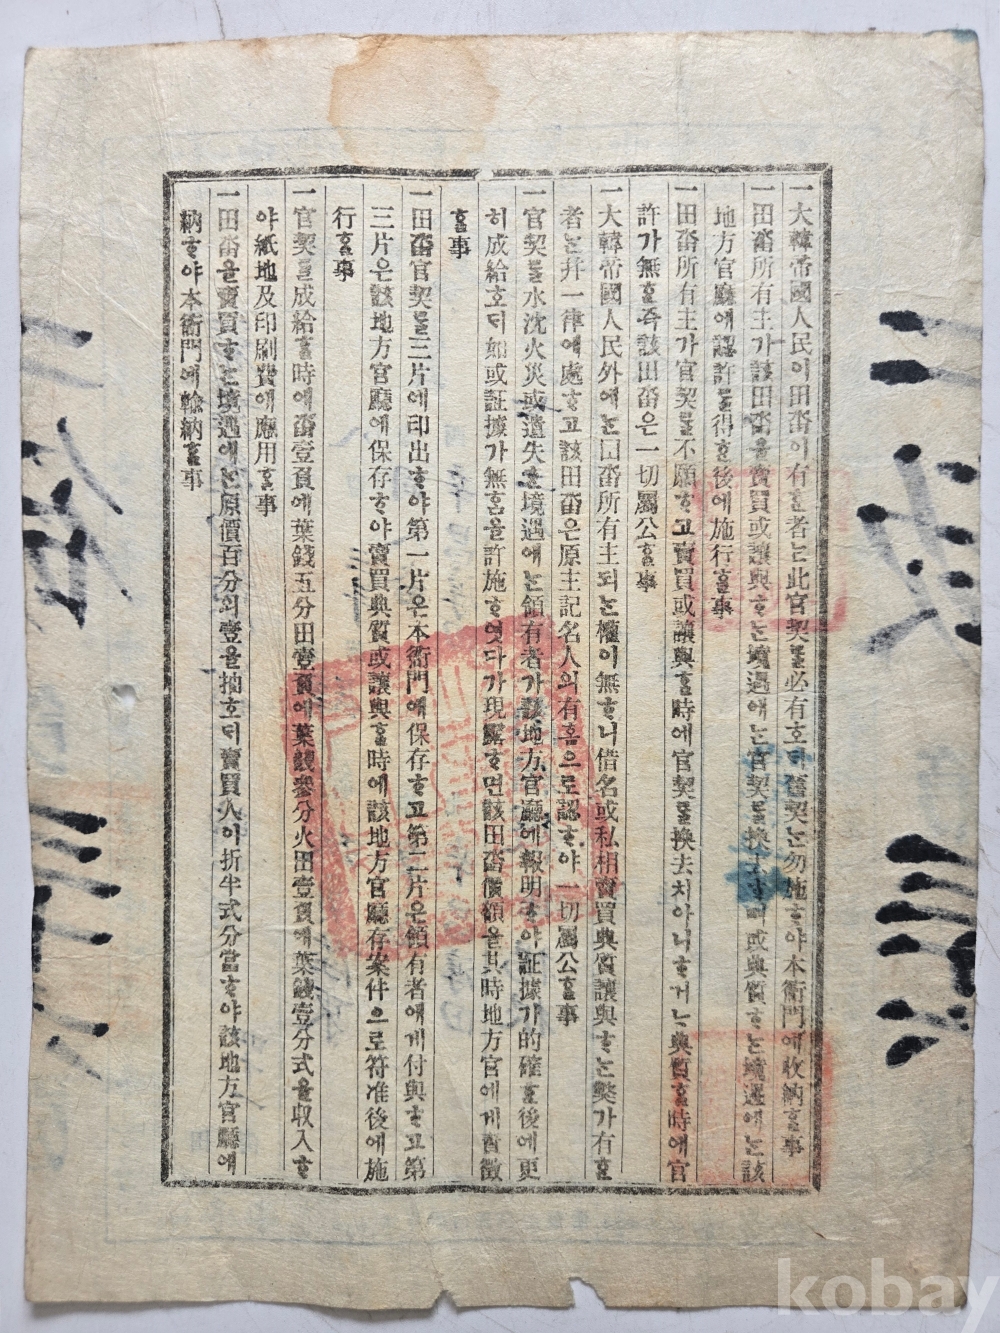 一大韓帝國人民이田畓이有ᄒᆞᆫ者ᄂᆞᆫ此官契ᄅᆞᆯ必有호ᄃᆡ舊契ᄂᆞᆫ勿施ᄒᆞ야本衙門에收納ᄒᆞᆯ事
一田畓所有主가該田畓을賣買或讓與ᄒᆞᄂᆞᆫ境遇에ᄂᆞᆫ官契ᄅᆞᆯ換去ᄒᆞ며或典質ᄒᆞᄂᆞᆫ境遇에ᄂᆞᆫ該
地方官廳에認許ᄅᆞᆯ得ᄒᆞᆫ後에施行ᄒᆞᆯ事
一田畓所有主가官契ᄅᆞᆯ不願ᄒᆞ고賣買或讓與ᄒᆞᆯ時에官契ᄅᆞᆯ換去치아니ᄒᆞ거ᄂᆞ典質ᄒᆞᆯ時에官
許가無ᄒᆞᆫ즉該田畓은一切屬公ᄒᆞᆯ事
一大韓帝國人民外에ᄂᆞᆫ田畓所有主되ᄂᆞᆫ權이無ᄒᆞ니借名或私相賣買典質讓與ᄒᆞᄂᆞᆫ弊가有ᄒᆞᆫ
者ᄂᆞᆫ幷一律에處ᄒᆞ고該田畓은原主記名人의有홈으로認ᄒᆞ야一切屬公ᄒᆞᆯ事
一官契ᄅᆞᆯ水沈火災或遺失ᄒᆞᆫ境遇에ᄂᆞᆫ領有者가該地方官廳에報明ᄒᆞ야証據가的確ᄒᆞᆫ後에更
히成給호ᄃᆡ如或証據가無홈을許施ᄒᆞ엿다가現露ᄒᆞ면該田畓價額을其時地方官에게責徵
ᄒᆞᆯ事
一田畓官契ᄅᆞᆯ三片에印出ᄒᆞ야第一片은本衙門에保存ᄒᆞ고第二片은領有者에게付與ᄒᆞ고第
三片은該地方官廳에保存ᄒᆞ야賣買典質或讓與ᄒᆞᆯ時에該地方官廳存案件으로符准後에施
行ᄒᆞᆯ事
一官契ᄅᆞᆯ成給ᄒᆞᆯ時에畓壹頁에葉錢五分田壹頁에葉錢參分火田壹頁에葉錢壹分式을收入ᄒᆞ
야紙地及印刷費에應用ᄒᆞᆯ事
一田畓을賣買ᄒᆞᄂᆞᆫ境遇에ᄂᆞᆫ原價百分의壹을抽호ᄃᆡ賣買人이折半式分當ᄒᆞ야該地方官廳에
納ᄒᆞ야本衙門에輸納ᄒᆞᆯ事
kobay